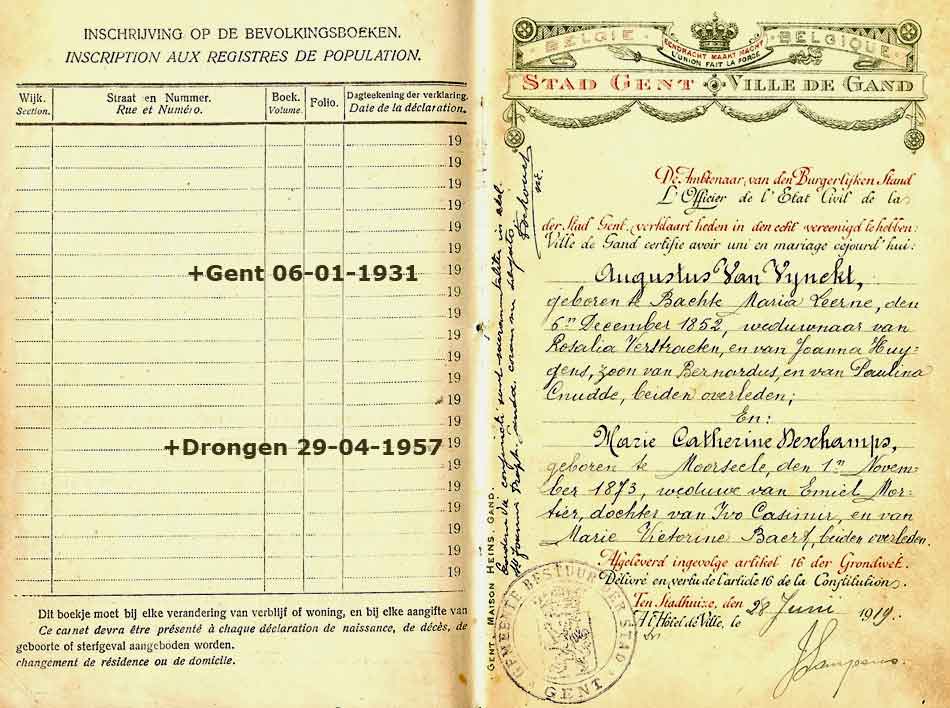 INSCHRIJVING OP DE BEVOLKINGSBOEKEN.
INSCRIPTION AUX REGISTRES DE POPULATION.
Wijk. Straat en Nummer. Boek. Folio. Dagteekening der verklaring.
Section. Rue et Numéro. Volume. Date de la déclaration.
19
19
19
19
19
19
19
+Gent 06-01-1931
19
19
19
19
19
19
19
19
+Drongen 29-04-1957
19
19
19
19
19
19
Dit boekje moet bij elke verandering van verblijf of woning, en bij elke aangifte van
Ce carnet devra être présenté à chaque déclaration de naissance, de décès, de
geboorte of sterfgeval aangeboden worden.
changement de résidence ou de domicile.
GENT, MAISON HEINS, GAND.
BELGIE BELGIQUE
EENDRACHT MAAKT MACHT
L'UNION FAIT LA FORCE
STAD GENT VILLE DE GAND
De Ambtenaar van den Burgerlijken Stand
L'Officier de l'Etat Civil de la
der Stad Gent, verklaart heden in den echt vereenigd te hebben:
Ville de Gand certifie avoir uni en mariage cejourd'hui:
Augustus Van Vynckt,
geboren te Bachte Maria Leerne, den
6en December 1852, weduwnaar van
Rosalia Verstraeten, en van Joanna Huy-
gens, zoon van Bernardus, en van Paulina
Cnudde, beiden overleden;
En:
Marie Catherine Deschamps,
geboren te Moorseele, den 1en Novem-
ber 1873, weduwe van Emiel Mor-
tier, dochter van Ivo Casimir, en van
Marie Victorine Baert, beiden overleden.
Afgeleverd ingevolge artikel 16 der Grondwet.
Délivré en vertu de l'article 16 de la Constitution.
Ten Stadhuize, den 28 Juni 1919
A l'Hôtel de Ville, le
GEMEENTE BESTUUR DER STAD
GENT